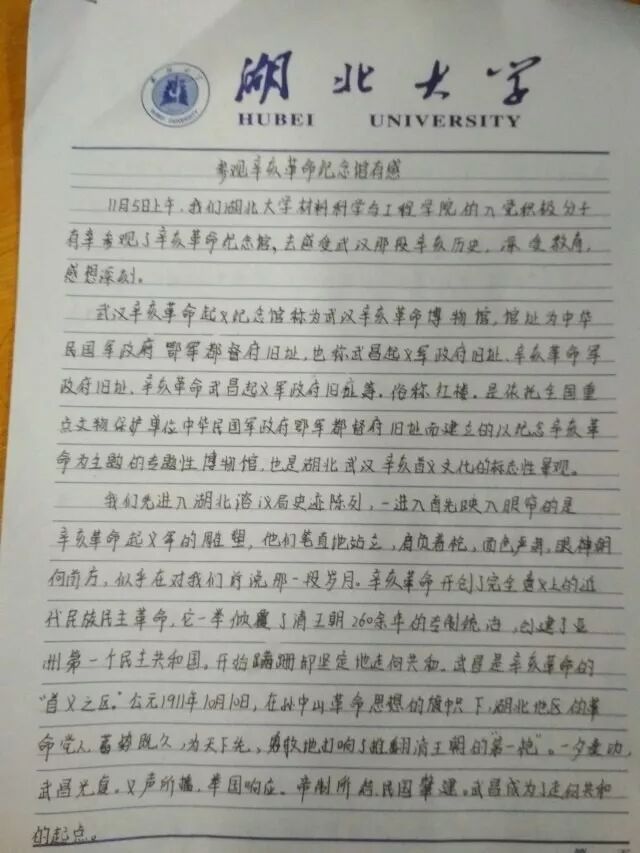 湖北大学
HUBEI UNIVERSITY
HUBEI UNIVERSITY
参观辛亥革命纪念馆有感
11月5日上午,我们湖北大学材料科学与工程学院的入党积极分子
有幸参观了辛亥革命纪念馆、去感受武汉那段辛亥历史,深受教育,
感想深刻。
武汉辛亥革命起义纪念馆称为武汉辛亥革命博物馆,馆址为中华
民国军政府鄂军都督府旧址,也称武昌起义军政府旧址、辛亥革命军
政府旧址、辛亥革命武昌起义军政府旧址等,俗称红楼,是依托全国重
点文物保护单位中华民国军政府鄂军都督府旧址而建立的以纪念辛亥革
命为主题的专题性博物馆,也是湖北武汉辛亥首义文化的标志性景观。
我们先进入湖北谘议局史迹陈列,一进入首先映入眼帘的是
辛亥革命起义军的雕塑,他们笔直地站立,肩负着枪,面色严肃,眼神朝
向前方,似乎在对我们诉说那一段岁月。辛亥革命开创了完全意义上的近
代民族民主革命,它一举倾覆了清王朝260余年的专制统治,创建了亚
洲第一个民主共和国。开始蹒跚却坚定地走向共和。武昌是辛亥革命的
“首义之区。”公元1911年10月10日,在孙中山革命思想的旗帜下,湖北地区的革
命党人蓄势既久,为天下先,勇敢地打响了推翻清王朝的“第一枪”。一夕发动,
武昌光复。义声所播,举国响应。帝制所趋,民国肇建。武昌成为了走向共和
的起点。